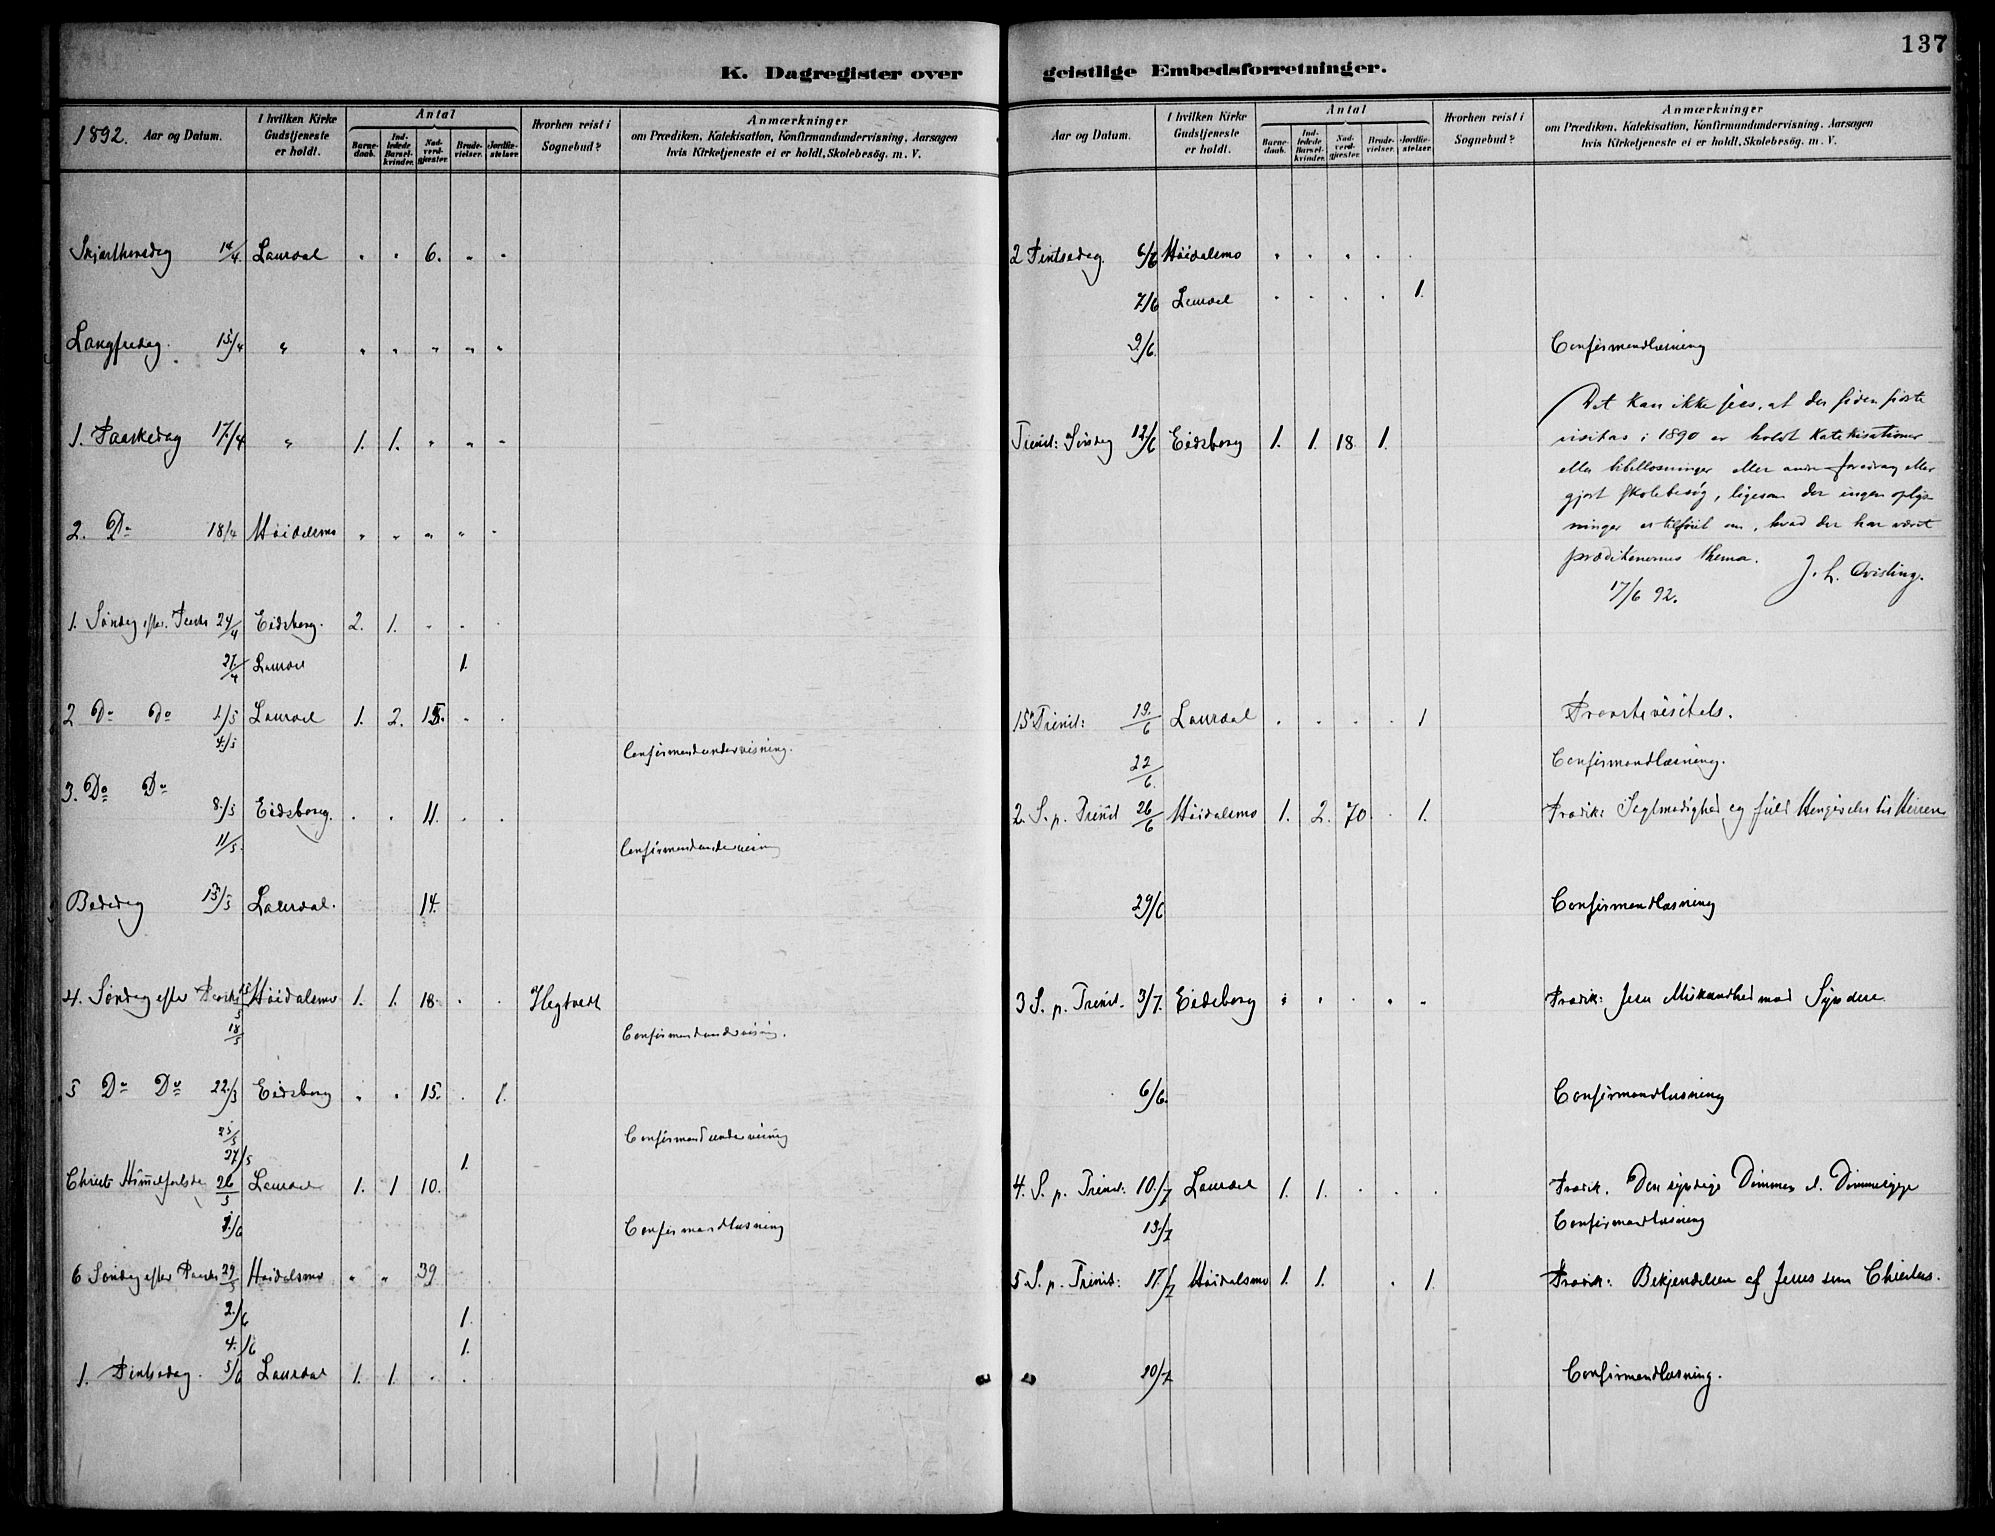 137
K. Dagregister over geistlige Embedsforretninger.
1892. Aar og Datum. I hvilken Kirke Gudstjeneste er holdt. Antal Barnedaab. Indledede Barselkvinder. Nadverdgjester. Brudevielser. Jordfæstelser. Hvorhen reist i Sognebud? Anmærkninger om Prædiken, Katekisation, Konfirmandundervisning, Aarsagen hvis Kirketjeneste ei er holdt, Skolebesög. m. V.
Skjærthorsdag 14/4. Laurdal " " 6. " "
Langfredag. 15/4 " " " " " "
1. Paaskedag 17/4 " 1. 1. " " "
2. Do 18/4 Høidalsmo " " " " "
1. Søndag efter Paaske 24/4 Eidsborg. 2. 1. " " "
27/4 Laurdal 1.
2 Do Do 1/5 Laurdal 1. 2. 15. " "
4/5 Confirmandundervisning.
3. Do Do
8/5 Eidsborg. " " 11. " "
11/5. Confirmandundervisning
Bededag 13/5 Laurdal. 14.
4. Søndag efter Paaske 15/5 Høidalsmo 1. 1. 18. " " Hegtvedt
18/5 Confirmandundervisning.
5 Do Do 22/5 Eidsborg " " 15. " 1.
25/5 Confirmandundervisning
27/5 1.
Christi Himmelfartsd. 26/5 Laurdal 1. 1 10.
1/6 Confirmandlæsning
6 Søndag efter Paaske 29/5 Høidalsmo " " 39
2/6 1.
4./6 1.
1. Pintsedag. 5/6 Laurdal 1. 1. " "
Aar og Datum. I hvilken Kirke Gudstjeneste er holdt. Antal Barnedaab. Indledede Barselkvinder. Nadverdgjester. Brudevielser. Jordfæstelser. Hvorhen reist i Sognebud? Anmærkninger om Prædiken, Katekisation, Konfirmandundervisning, Aarsagen hvis Kirketjeneste ei er holdt, Skolebesög. m. V.
2 Pintsedag. 6/6 Høidalsmo " " " " "
7/6 Laurdal " " " " 1.
9/6. Confirmandlæsning
Det kan ikke sees, at der siden sidste
visitas i 1890 er holdt katekisationer
Trinit: Søndag 12/6 Eidsborg 1. 1. 18. 1.
eller bibellæsninger eller andre foredrag eller
gjort skolebesøg, ligesom der ingen oplys-
ninger er tilføiet om, hvad der har været
prædikenernes thema. J. L. Qvisling.
17/6 92.
1 S. p. Trinit: 19./6 Laurdal " " " " 1 Provstevisitats.
22/6. Confirmandlæsning.
2. S. p. Trinit 26/6 Høidalsmo 1. 2. 70. " 1. Prædik: Sagtmodighed og fuld Hengivelse til Herren
29/6 Confirmandlæsning
3 S. p. Trinit. 3/7. Eidsborg " " " " " Prædik: Jesu Miskundhed mod Syndere
6/6. Confirmandlæsning
4. S. p. Trinit: 10./7 Laurdal 1. 1. " " " Prædik. Den syndige Dømmen o. Dømmesyge
13./7 Confirmandlæsning
5 S. p. Trinit: 17./7 Høidalsmo 1. 1. " 1. Prædik: Bekjendelsen af Jesus som Christus.
20/7 Confirmandlæsning.